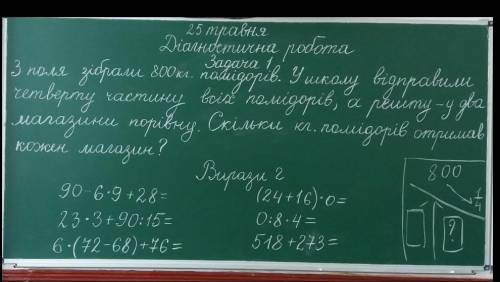 25 травня
Діагностична робота
Задача 1
З поля зібрали 800кг. помідорів. У школу відправили
четверту частину всіх помідорів, а решту-у два
магазини порівну. Скільки кг. помідорів отримав
кожен магазин?
Вирази 2
90-6·9+28=
23·3+90:15=
6·(72-68)+76=
(24+16)·0=
0:8·4=
518+273=
800
1/4
?